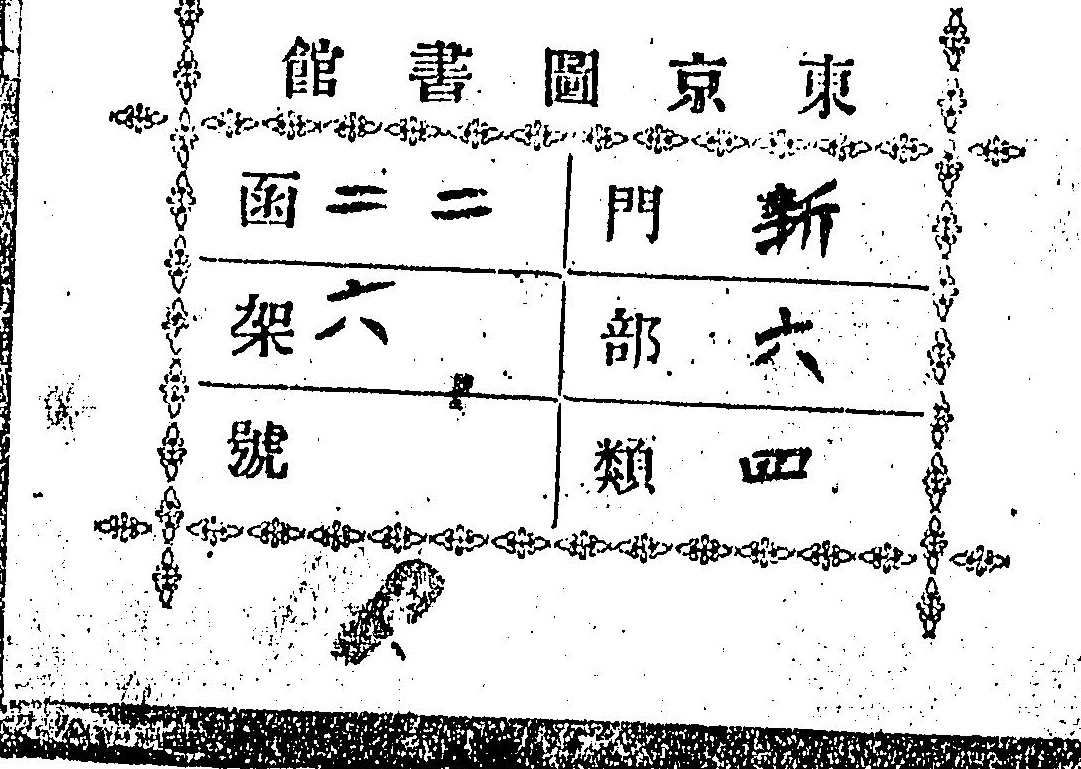 東京圖書館
新門 二二函
六部 六架
四類 號